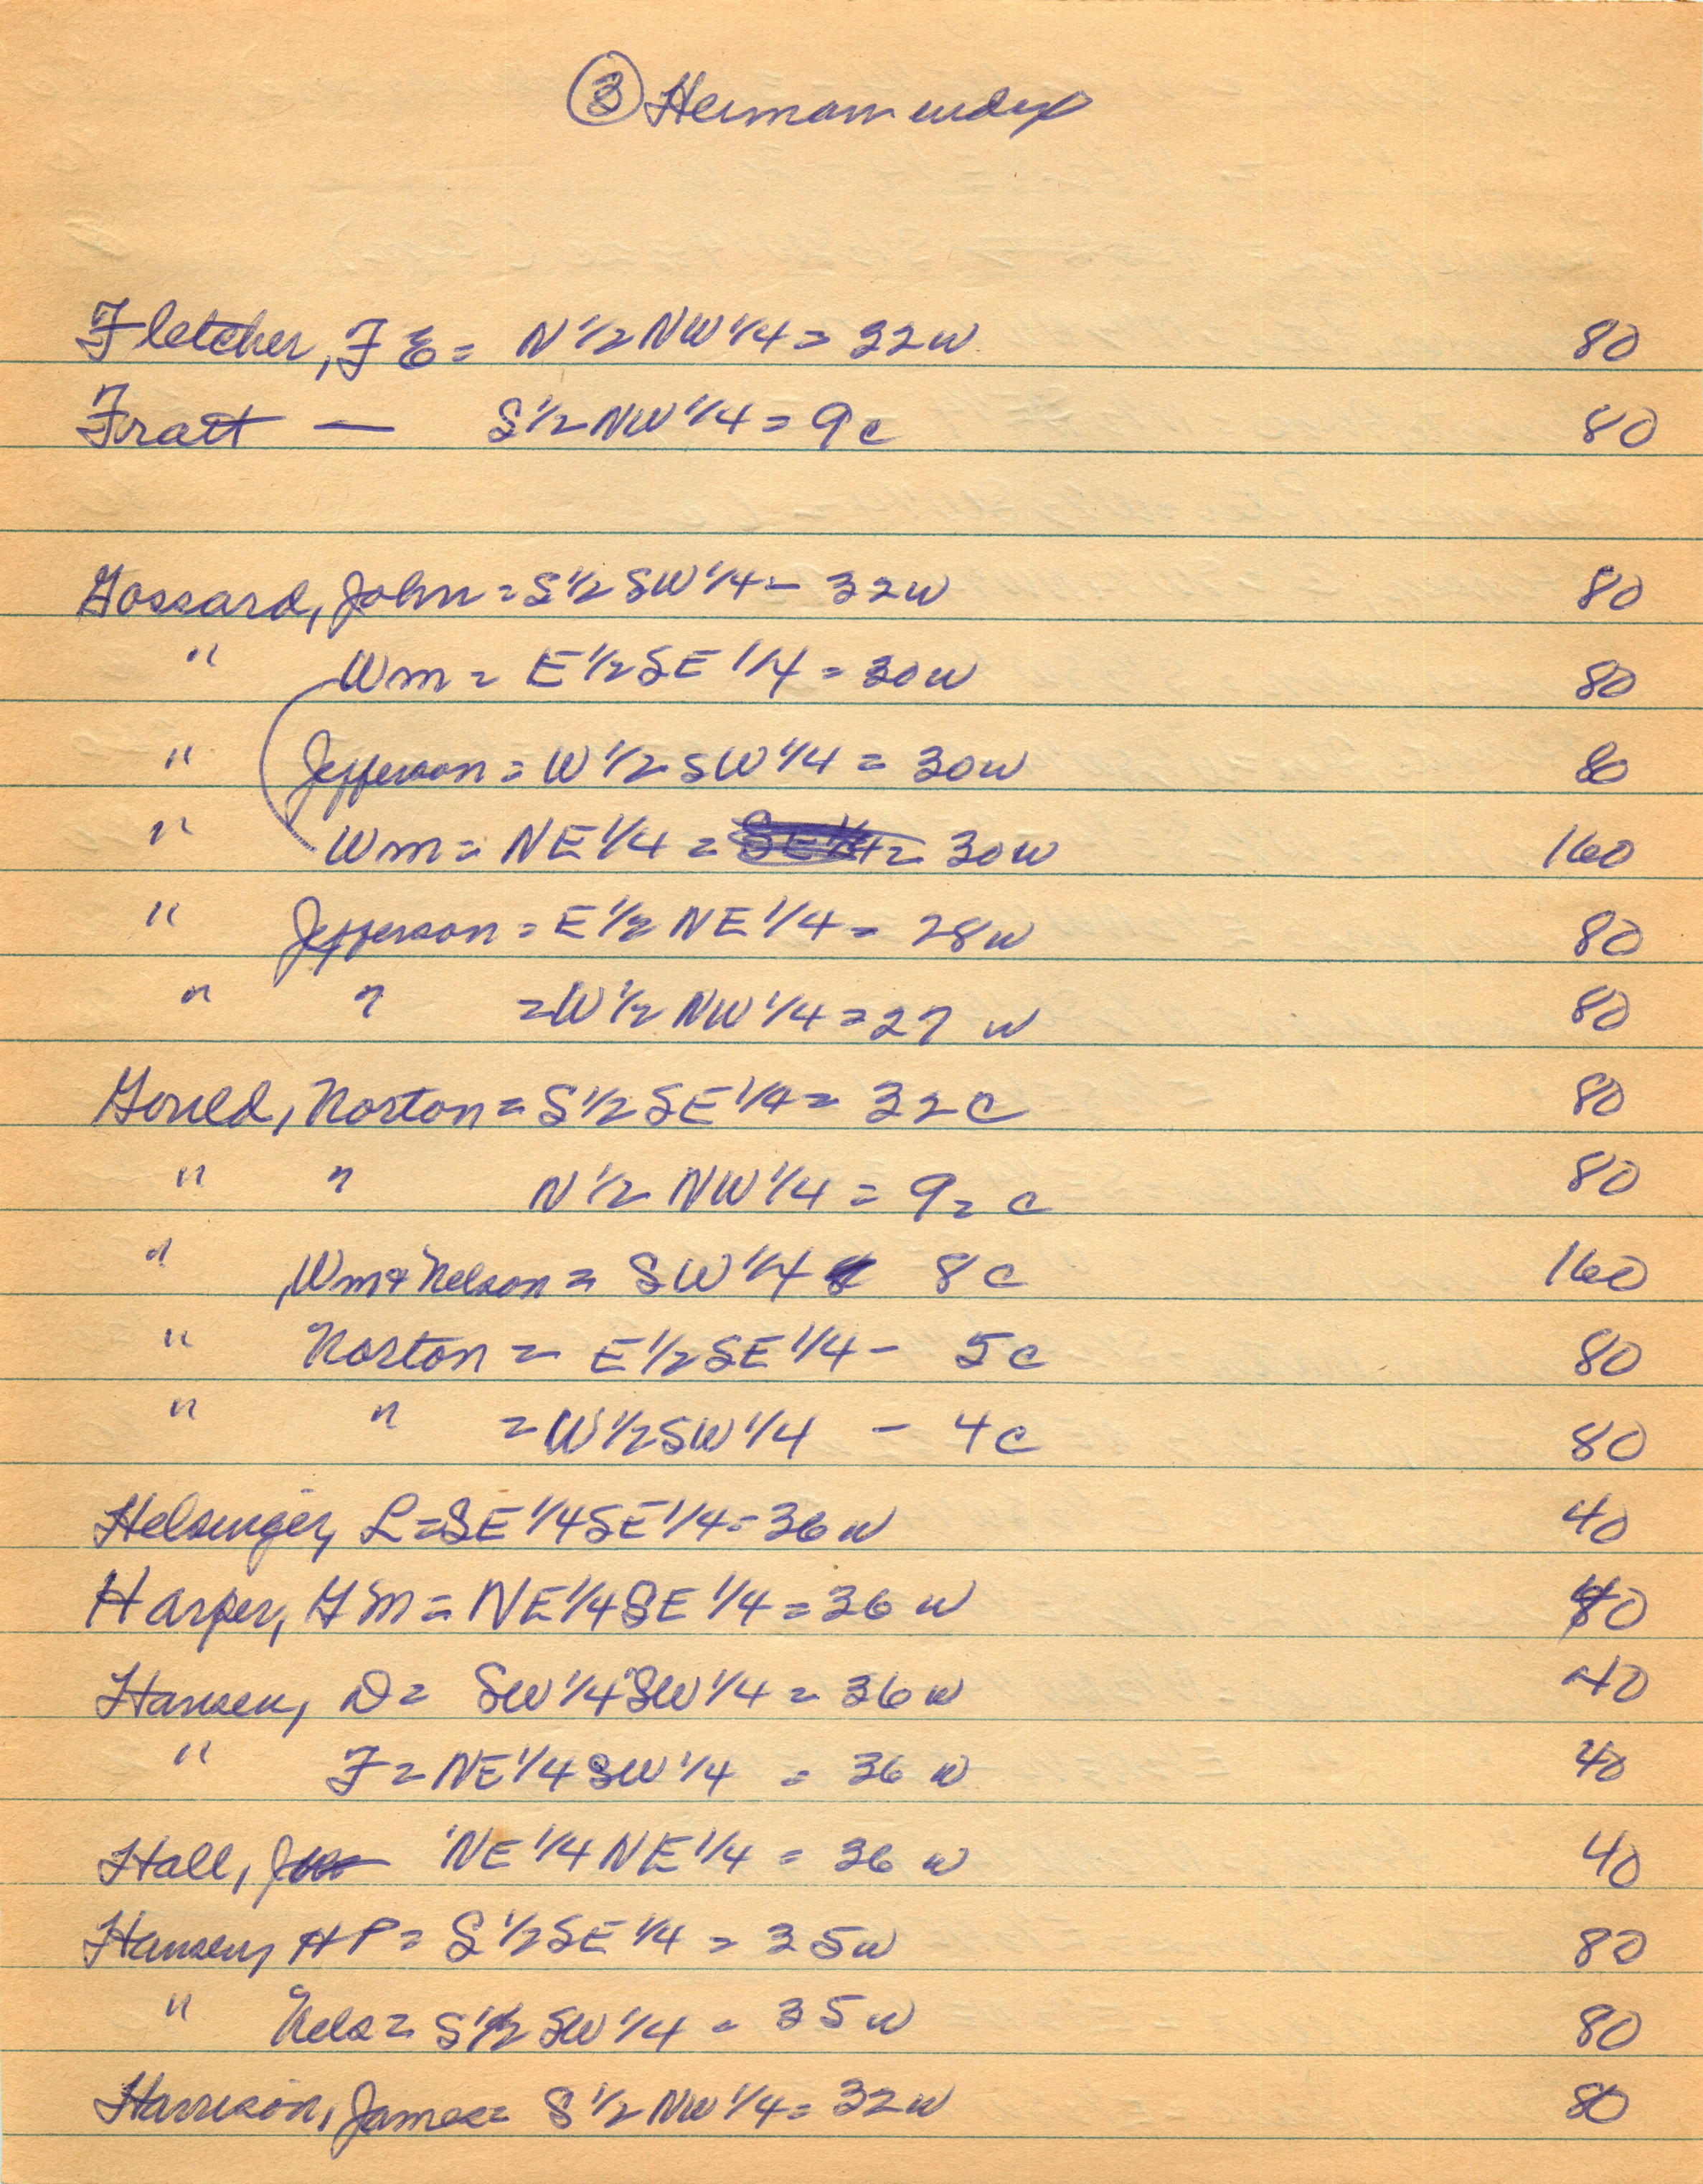 ③ Herman index
Fletcher, F E = N 1/2 NW 1/4 = 22 w 80
Fratt — S 1/2 NW 1/4 = 9 c 80
Gossard, John = S 1/2 SW 1/4 - 32 w 80
" Wm = E 1/2 SE 1/4 = 30 w 80
" Jefferson = W 1/2 SW 1/4 = 30 w 80
" Wm = NE 1/4 = = 30 w 160
" Jefferson = E 1/2 NE 1/4 = 28 w 80
" " = W 1/2 NW 1/4 = 27 w 80
Gould, Norton = S 1/2 SE 1/4 = 32 c 80
" " N 1/2 NW 1/4 = 9 = c 80
" Wm & Nelson = SW 1/4 8 c 160
" Norton = E 1/2 SE 1/4 - 5 c 80
" " = W 1/2 SW 1/4 - 4 c 80
Helsinger, L = SE 1/4 SE 1/4 = 36 w 40
Harper, G M = NE 1/4 SE 1/4 = 36 w 40
Hansen, D = SW 1/4 SW 1/4 = 36 w 40
" F = NE 1/4 SW 1/4 = 36 w 40
Hall, NE 1/4 NE 1/4 = 36 w 40
Hansen, H P = S 1/2 SE 1/4 = 35 w 80
" Nels = S 1/2 SW 1/4 = 35 w 80
Harrison, James = S 1/2 NW 1/4 = 32 w 80